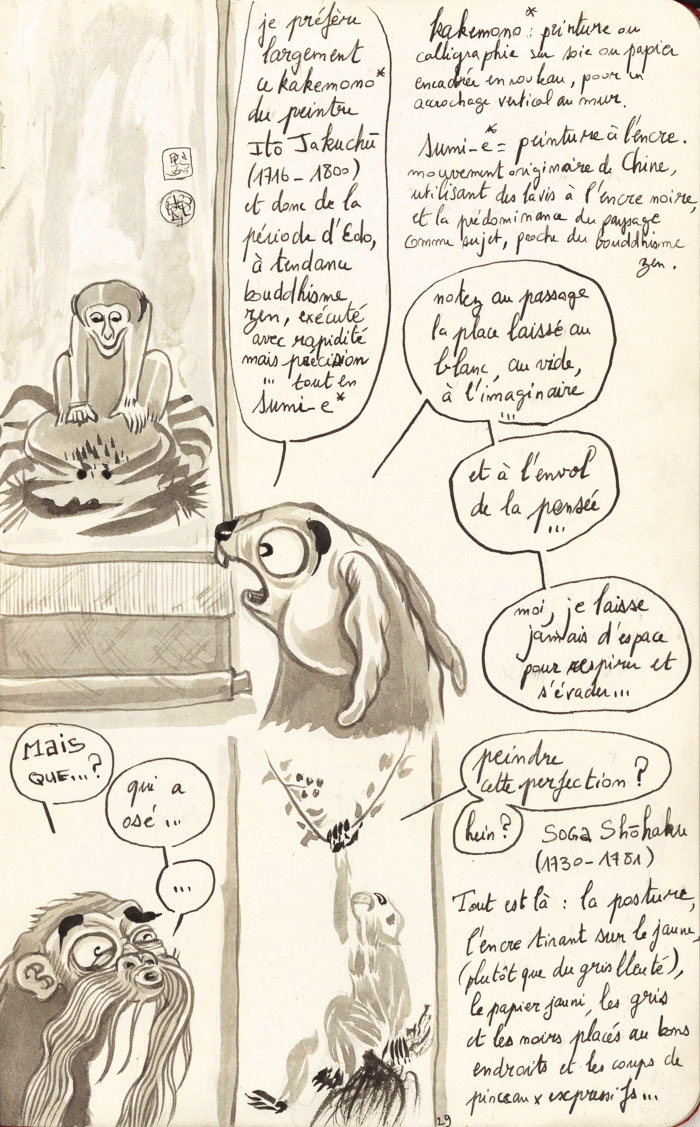 je préfère
largement
ce kakemono*
du peintre
Itō Jakuchū
(1716 - 1800)
et donc de la
période d'Edo,
à tendance
bouddhisme
zen, exécuté
avec rapidité
mais précision
... tout en
Sumi-e*
kakemono* : peinture ou
calligraphie sur soie ou papier
encadrée en rouleau, pour un
accrochage vertical au mur.
Sumi-e* = peinture à l'encre.
mouvement originaire de Chine,
utilisant des lavis à l'encre noire,
et la prédominance du paysage
comme sujet, proche du bouddhisme
zen.
notez au passage
la place laissé au
blanc, au vide,
à l'imaginaire
...
et à l'envol
de la pensée
...
moi, je laisse
jamais d'espace
pour respirer et
s'évader...
Mais
QUE...?
qui a
osé ...
...
peindre
cette perfection ?
hein ?
SOGA Shōhaku
(1730 - 1781)
Tout est là : la posture,
l'encre tirant sur le jaune,
(plutôt que du gris bleuté),
le papier jauni, les gris
et les noirs placés au bons
endroits et les coups de
pinceaux expressifs...
29